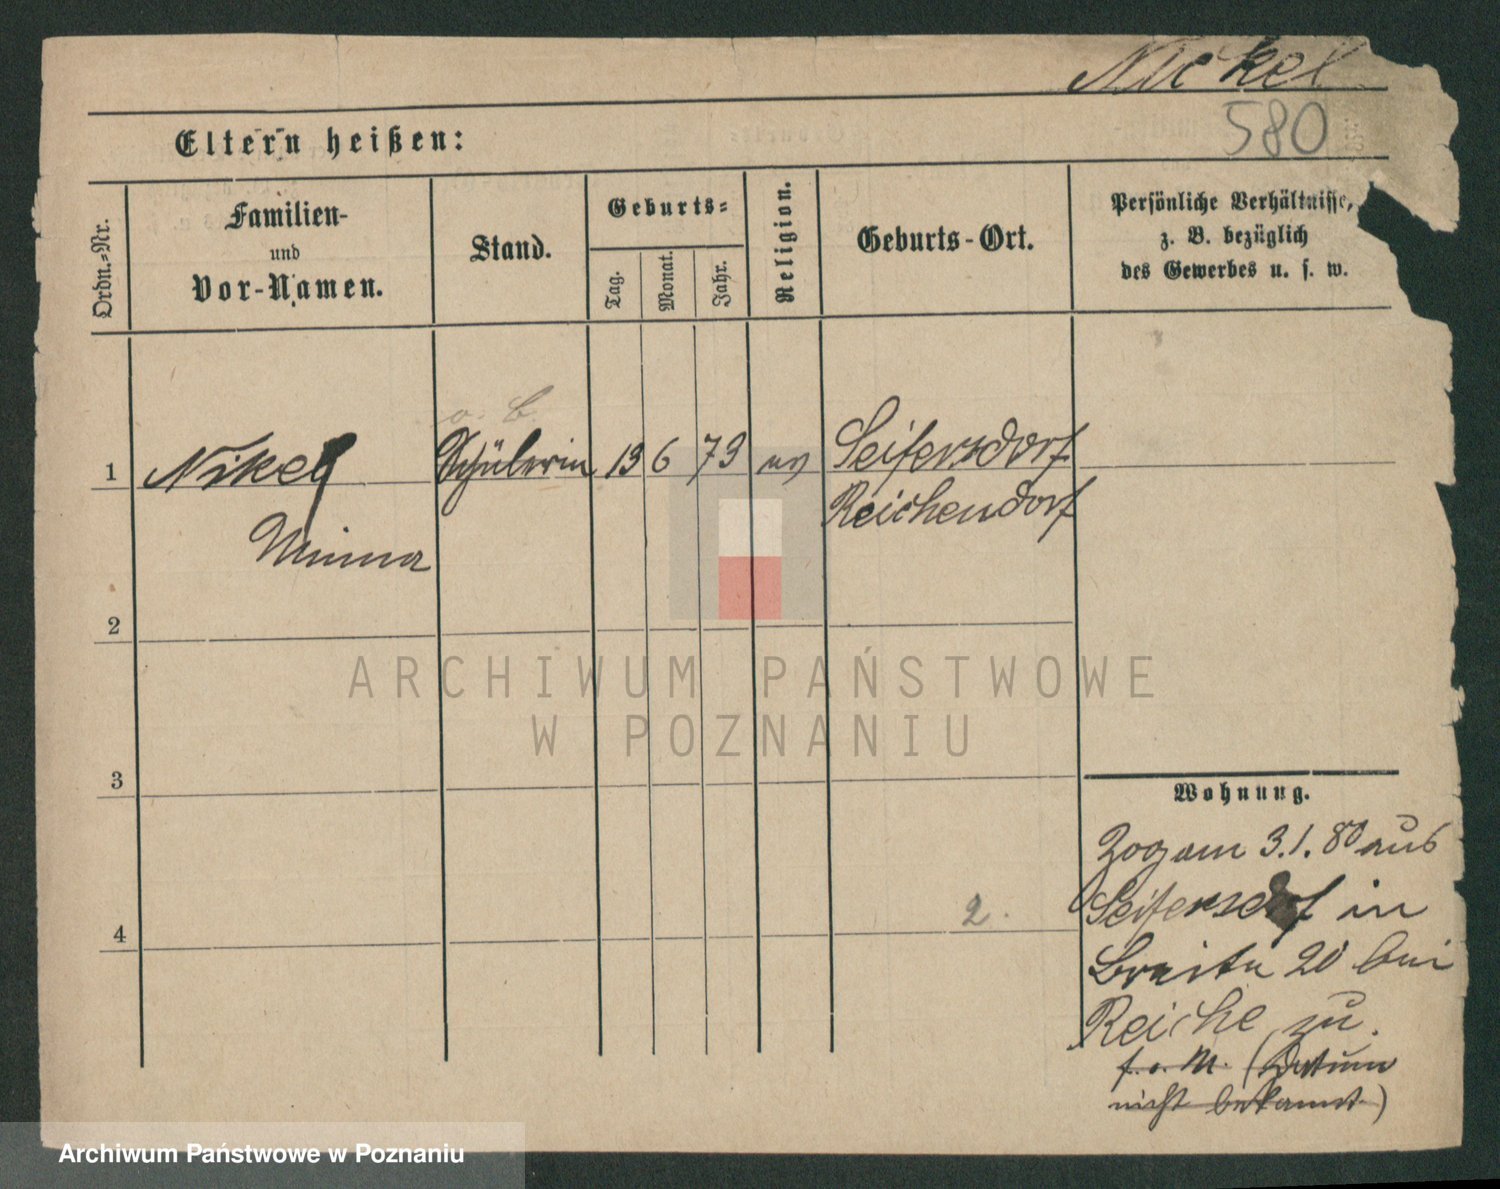 Nickel
580
Eltern heißen:
Ordn.-Nr.
Familien-
und
Vor-Namen.
Stand.
Geburts-
Tag.
Monat.
Jahr.
Religion.
Geburts-Ort.
Persönliche Verhältnisse,
z. B. bezüglich
des Gewerbes u. s. w.
o. b.
1 Nikel Schülerin 13 6 73 ev Seifersdorf
Reichendorf
Minna
2
3
4
2.
Wohnung.
Zog am 3.1.80 aus
Seifersdorf in
Breite 20 bei
Reiche zu.
f. o. M. (Datum
nicht bekannt)
ARCHIWUM PAŃSTWOWE
W POZNANIU
Archiwum Państwowe w Poznaniu